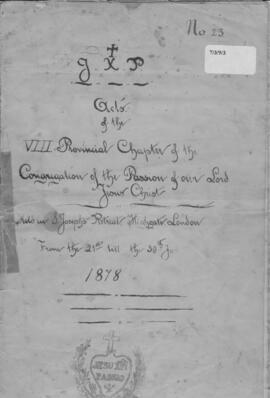 No 23
J X P
Acts
of the
VIII Provincial Chapter of the
Congregation of the Passion of our Lord
Jesus Christ
Held in St Joseph's Retreat Highgate London
From the 21st till the 30th
1878
JESU XPI
PASSIO